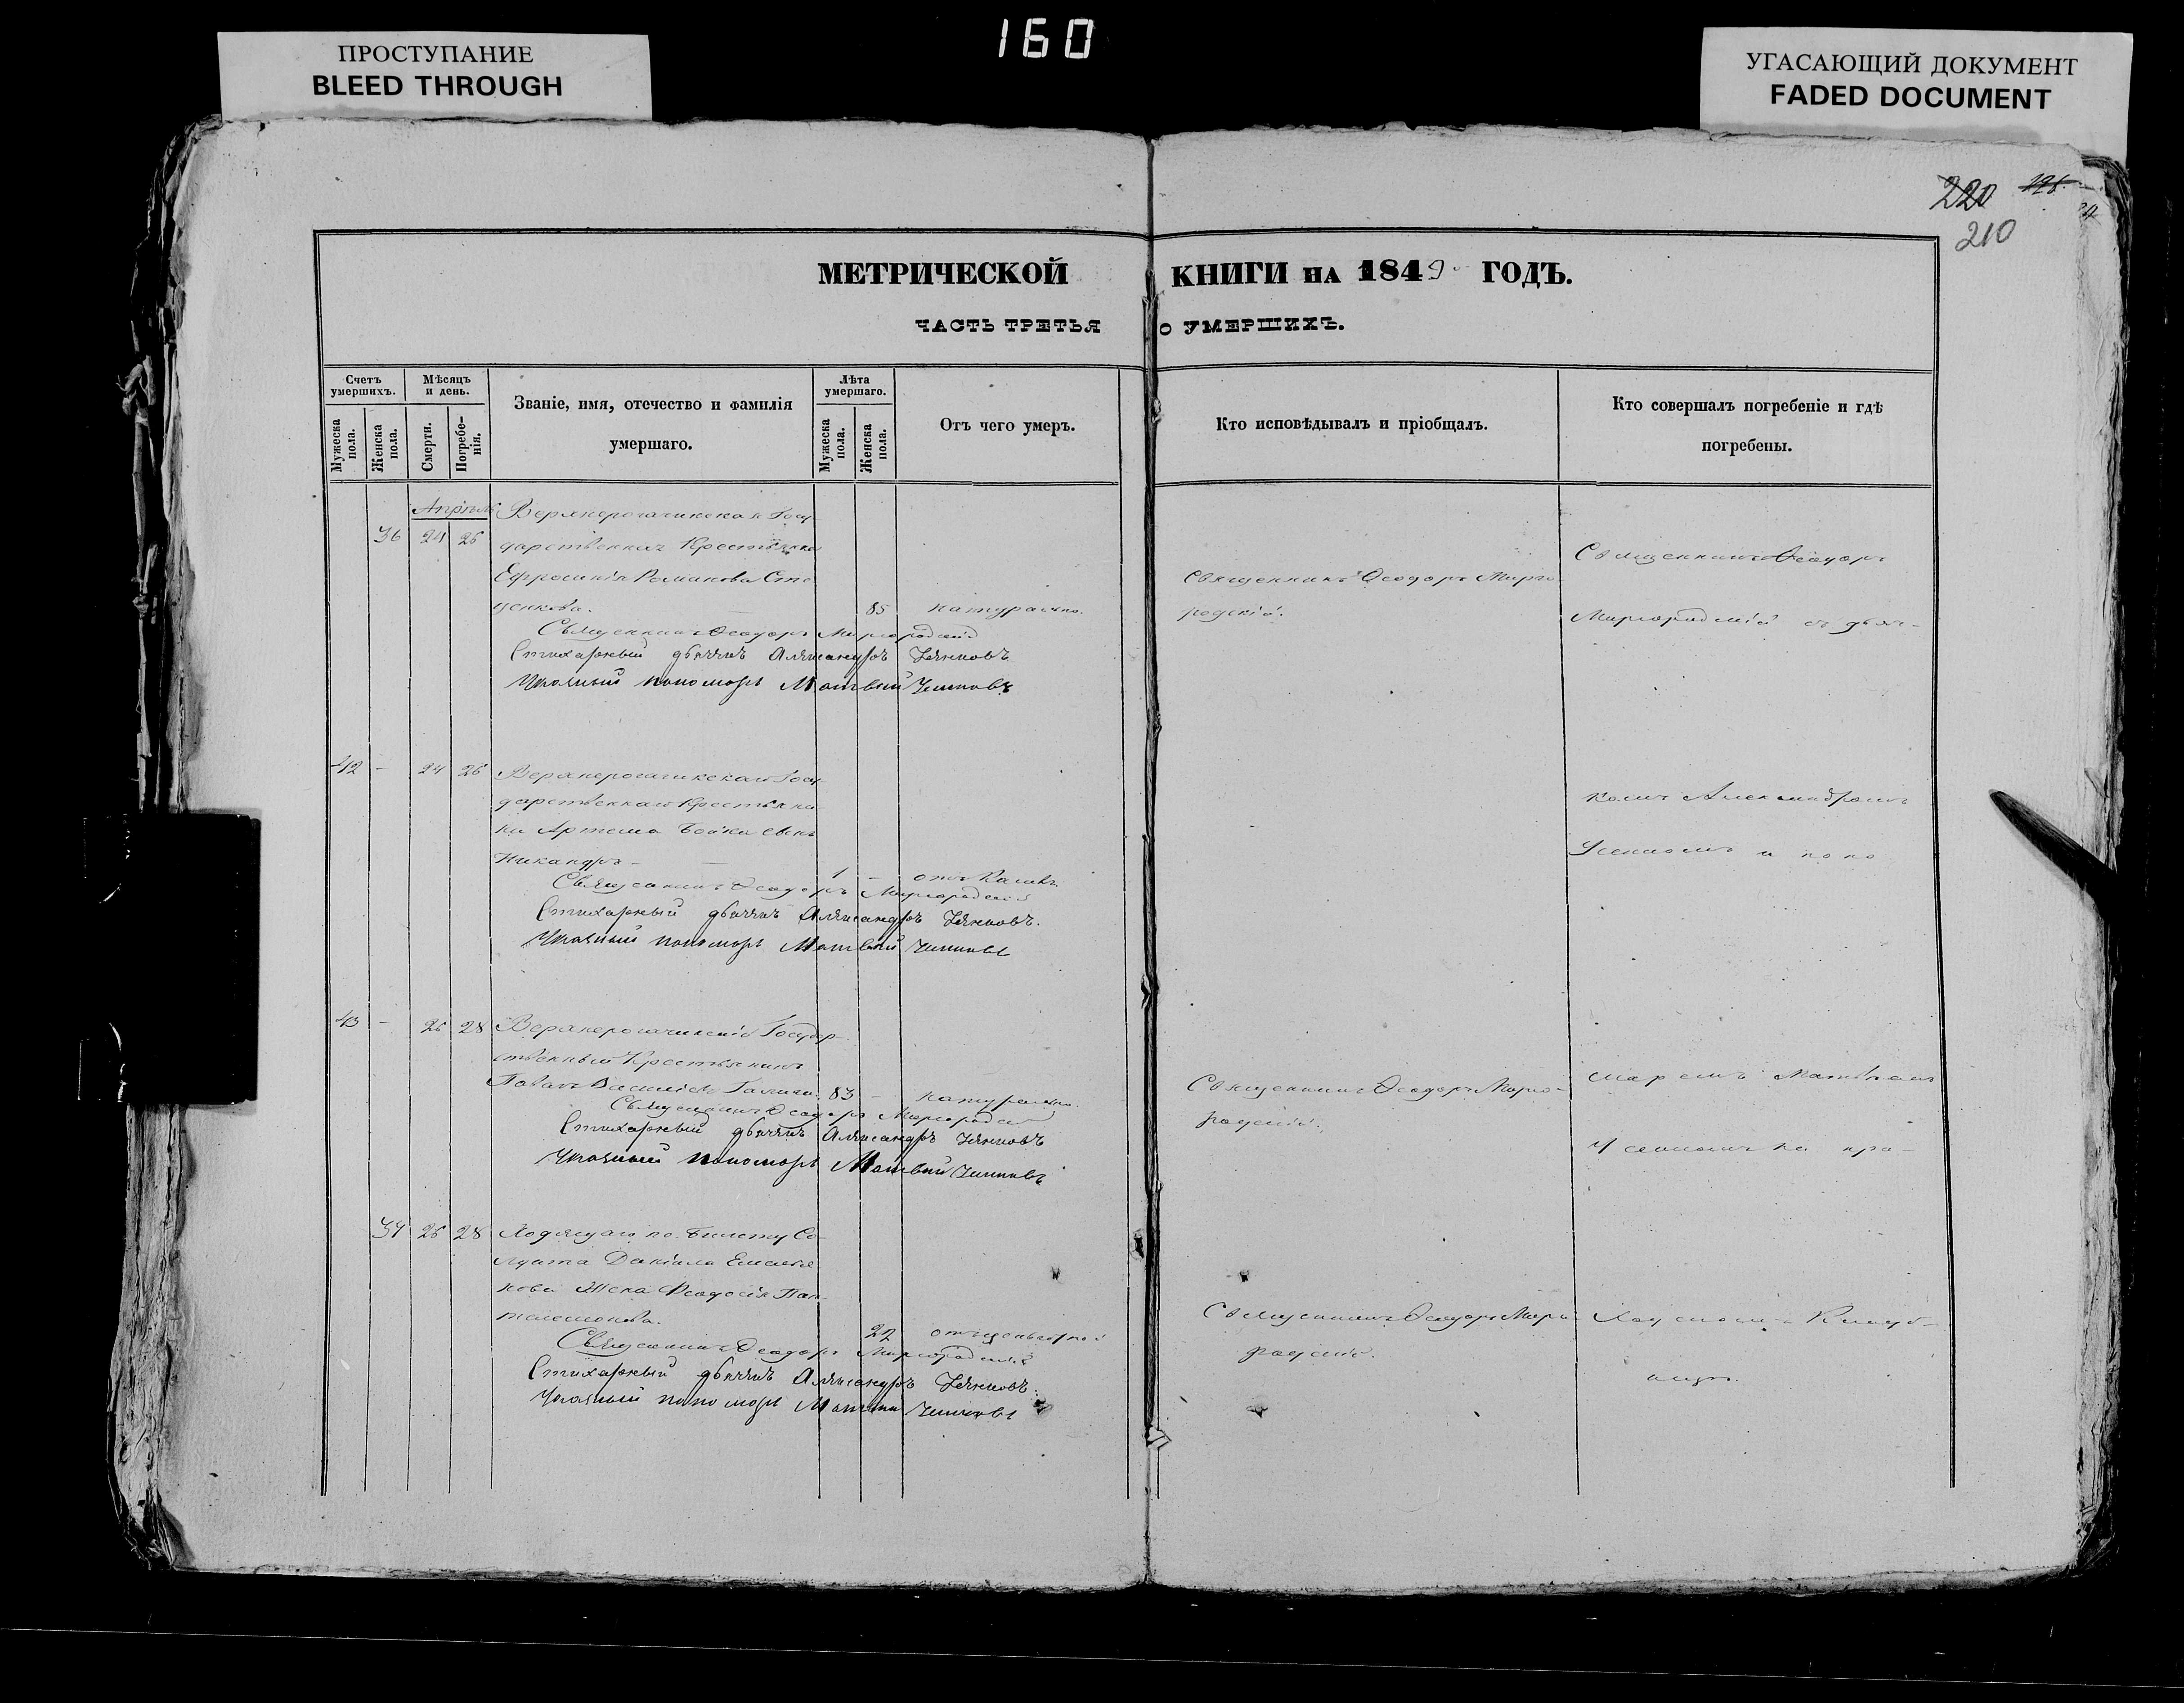 160
ПРОСТУПАНИЕ
BLEED THROUGH
УГАСАЮЩИЙ ДОКУМЕНТ
FADED DOCUMENT
220
210
МЕТРИЧЕСКОЙ КНИГИ НА 1849 ГОДЪ.
ЧАСТЬ ТРЕТЬЯ О УМЕРШИХЪ.
Счетъ умершихъ.
Мужеска пола.
Женска пола.
Мѣсяцъ и день.
Смерти.
Погребенія.
Званіе, имя, отечество и фамилія
умершаго.
Лѣта умершаго.
Мужеска пола.
Женска пола.
Отъ чего умеръ.
Кто исповѣдывалъ и пріобщалъ.
Кто совершалъ погребеніе и гдѣ
погребены.
Апрѣль Верхнерогачикская Госу
36 24 26 дарственная Крестьянка
Ефросинія Романова Сте
ценкова. 85 натурально.
Священникъ Ѳеодоръ Миргородскій
Стихарный дьячекъ Александръ
Указный пономарь Матвій
Священникъ Ѳеодоръ Мирго
родскій.
Священникъ Ѳеодоръ
Миргородскій съ дьяч-
42 - 24 26 Верхнерогачикскаго Госу
дарственнаго Крестьяни
на Артема Бойка сынъ
Никандръ - 1 - отъ
Священникъ Ѳеодоръ Миргородскій
Стихарный дьячекъ Александръ
Указный пономарь Матвій
комъ Александромъ
и поно
43 - 26 28 Верхнерогачикскій Государ
ственный Крестьянинъ
Василіевъ 83 - натурально.
Священникъ Ѳеодоръ Миргородскій
Стихарный дьячекъ Александръ
Указный пономарь Матвій
Священникъ Ѳеодоръ Мирго-
родскій.
маремъ Матвѣемъ
на при-
26 28 Ходящаго по билету Со
лдата Даніила Емелья
нова Жена Ѳеодосія Пан-
телемонова. 22
Священникъ Ѳеодоръ Миргородскій
Стихарный дьячекъ Александръ
Указный пономарь Матвій
Священникъ Ѳеодоръ Мирго
родскій.
ходскомъ Кладб-
ищѣ.